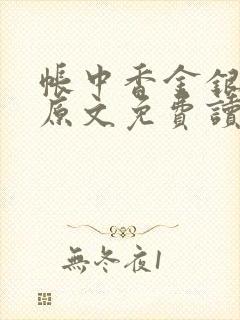 帳中香金銀
原文免費讀
無冬夜1